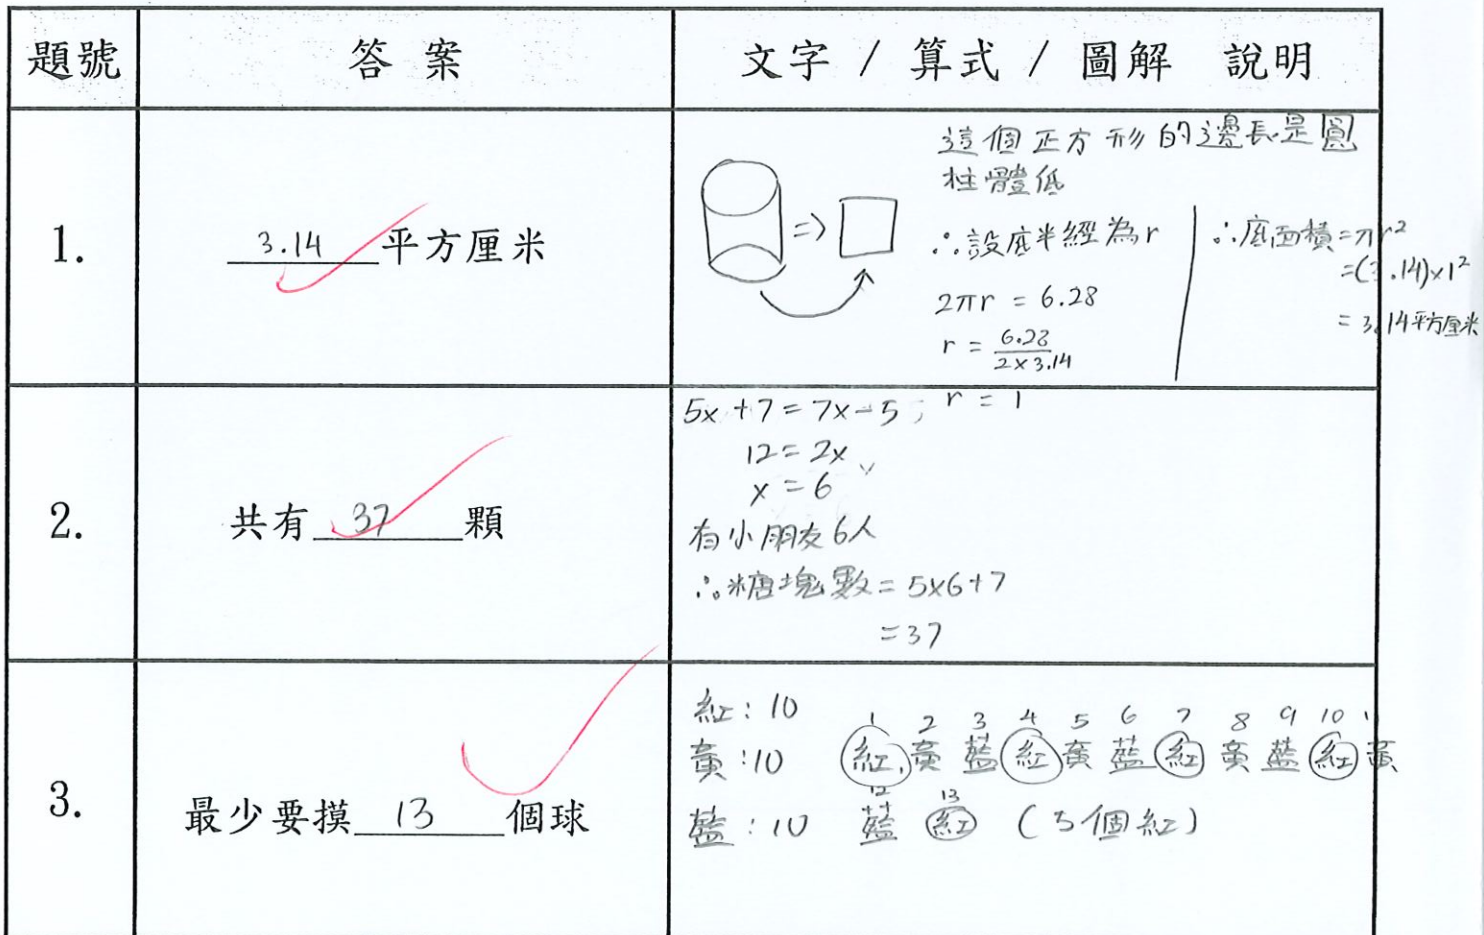 題號 答案 文字 / 算式 / 圖解 說明
1.
3.14 平方厘米
這個正方形的邊長是圓
柱體低
∴設底半經為r
2πr = 6.28
r = 6.28 / 2×3.14
r = 1
∴底面積=πr²
=(3.14)×1²
= 3.14平方厘米
=>
2.
共有 37 顆
5x +7 = 7x-5
12 = 2x
x = 6
有小朋友6人
∴糖塊數= 5x6+7
=37
3.
最少要摸 13 個球
紅：10
黃：10
藍：10
1 2 3 4 5 6 7 8 9 10 1
紅 黃 藍 紅 黃 藍 紅 黃 藍 紅 黃
12 13
藍 紅 (5個紅)